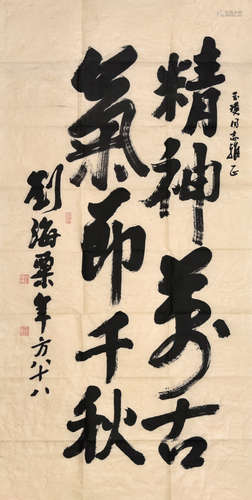 玉璞同志雅正
精神萬古
氣節千秋
劉海粟年方八十八